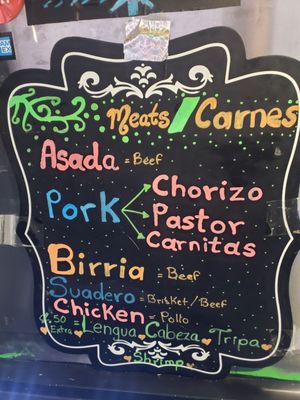 Meats / Carnes
Asada = Beef
Pork
Chorizo
Pastor
Carnitas
Birria = Beef
Suadero = Brisket/Beef
Chicken = Pollo
Extra Lengua Cabeza Tripa
Shrimp